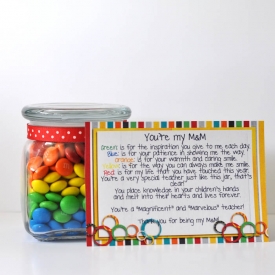 You're my M&M
Green is for the inspiration you give to me each day.
Blue is for your patience in showing me the way.
Orange is for your warmth and caring smile.
Yellow is for the way you can always make me smile.
Red is for my life that you have touched this year.
You're a very special teacher just like this jar, that's
clear!
You place knowledge in your children's hands
and melt into their hearts and lives forever.
You're a "Magnificent" and "Marvelous" teacher!
Thank you for being my M&M!